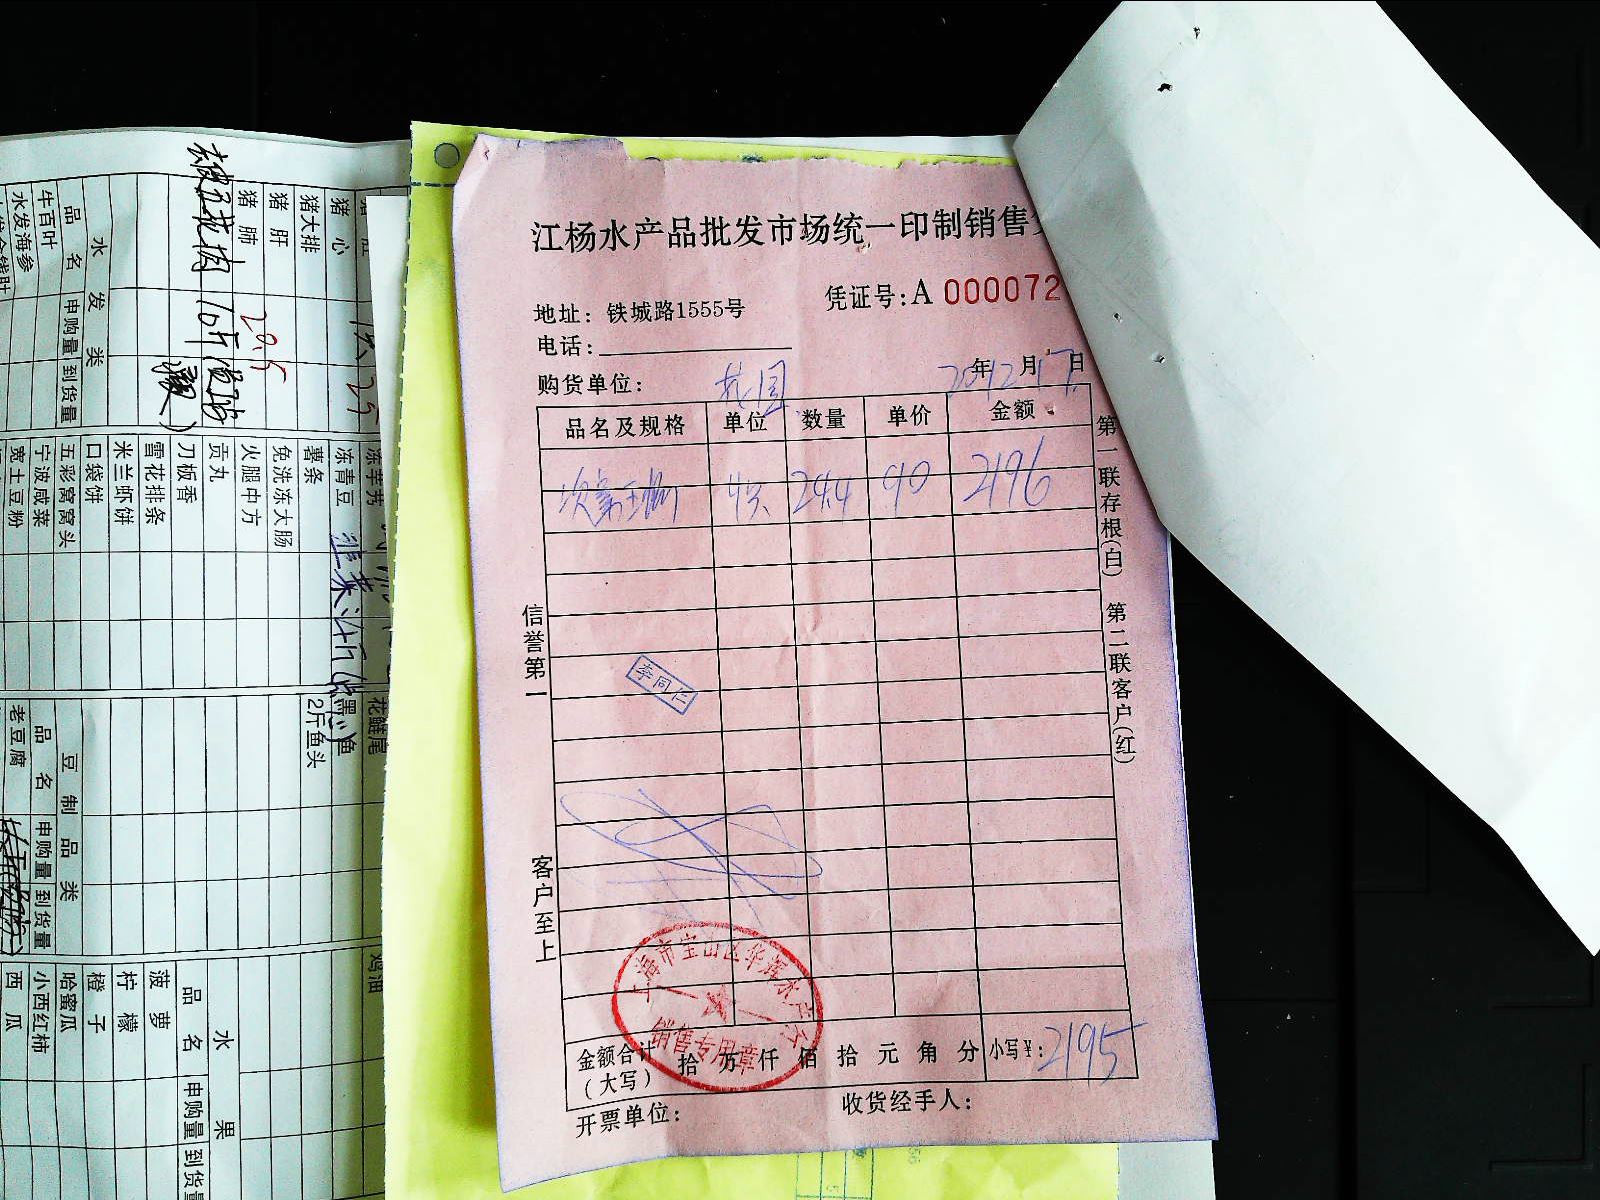 江杨水产品批发市场统一印制销售
凭证号:A 000072
地址：铁城路1555号
电话:
购货单位: 花园
2012年 月17日
品名及规格 单位 数量 单价 金额
24.4 90 2196
信誉第一
客户至上
第一联存根(白) 第二联客户(红)
李同仁
上海市宝山区华辉水产行
销售专用章
金额合计(大写) 拾 万 仟 佰 拾 元 角 分 小写¥: 2195
开票单位:
收货经手人:
猪心
猪大排
猪肝
猪肺
20.5
水发类
品名 申购量 到货量
牛百叶
水发海参
冻青豆
薯条
免洗冻大肠
火腿中方
贡丸
刀板香
雪花排条
米兰虾饼
口袋饼
五彩窝窝头
宁波咸菜
宽土豆粉
韭菜
花鲢尾
黑鱼
2斤鱼头
豆制品类
品名 申购量 到货量
老豆腐
鸡油
水果
品名 申购量 到货量
菠萝
柠檬
橙子
哈蜜瓜
小西红柿
西瓜